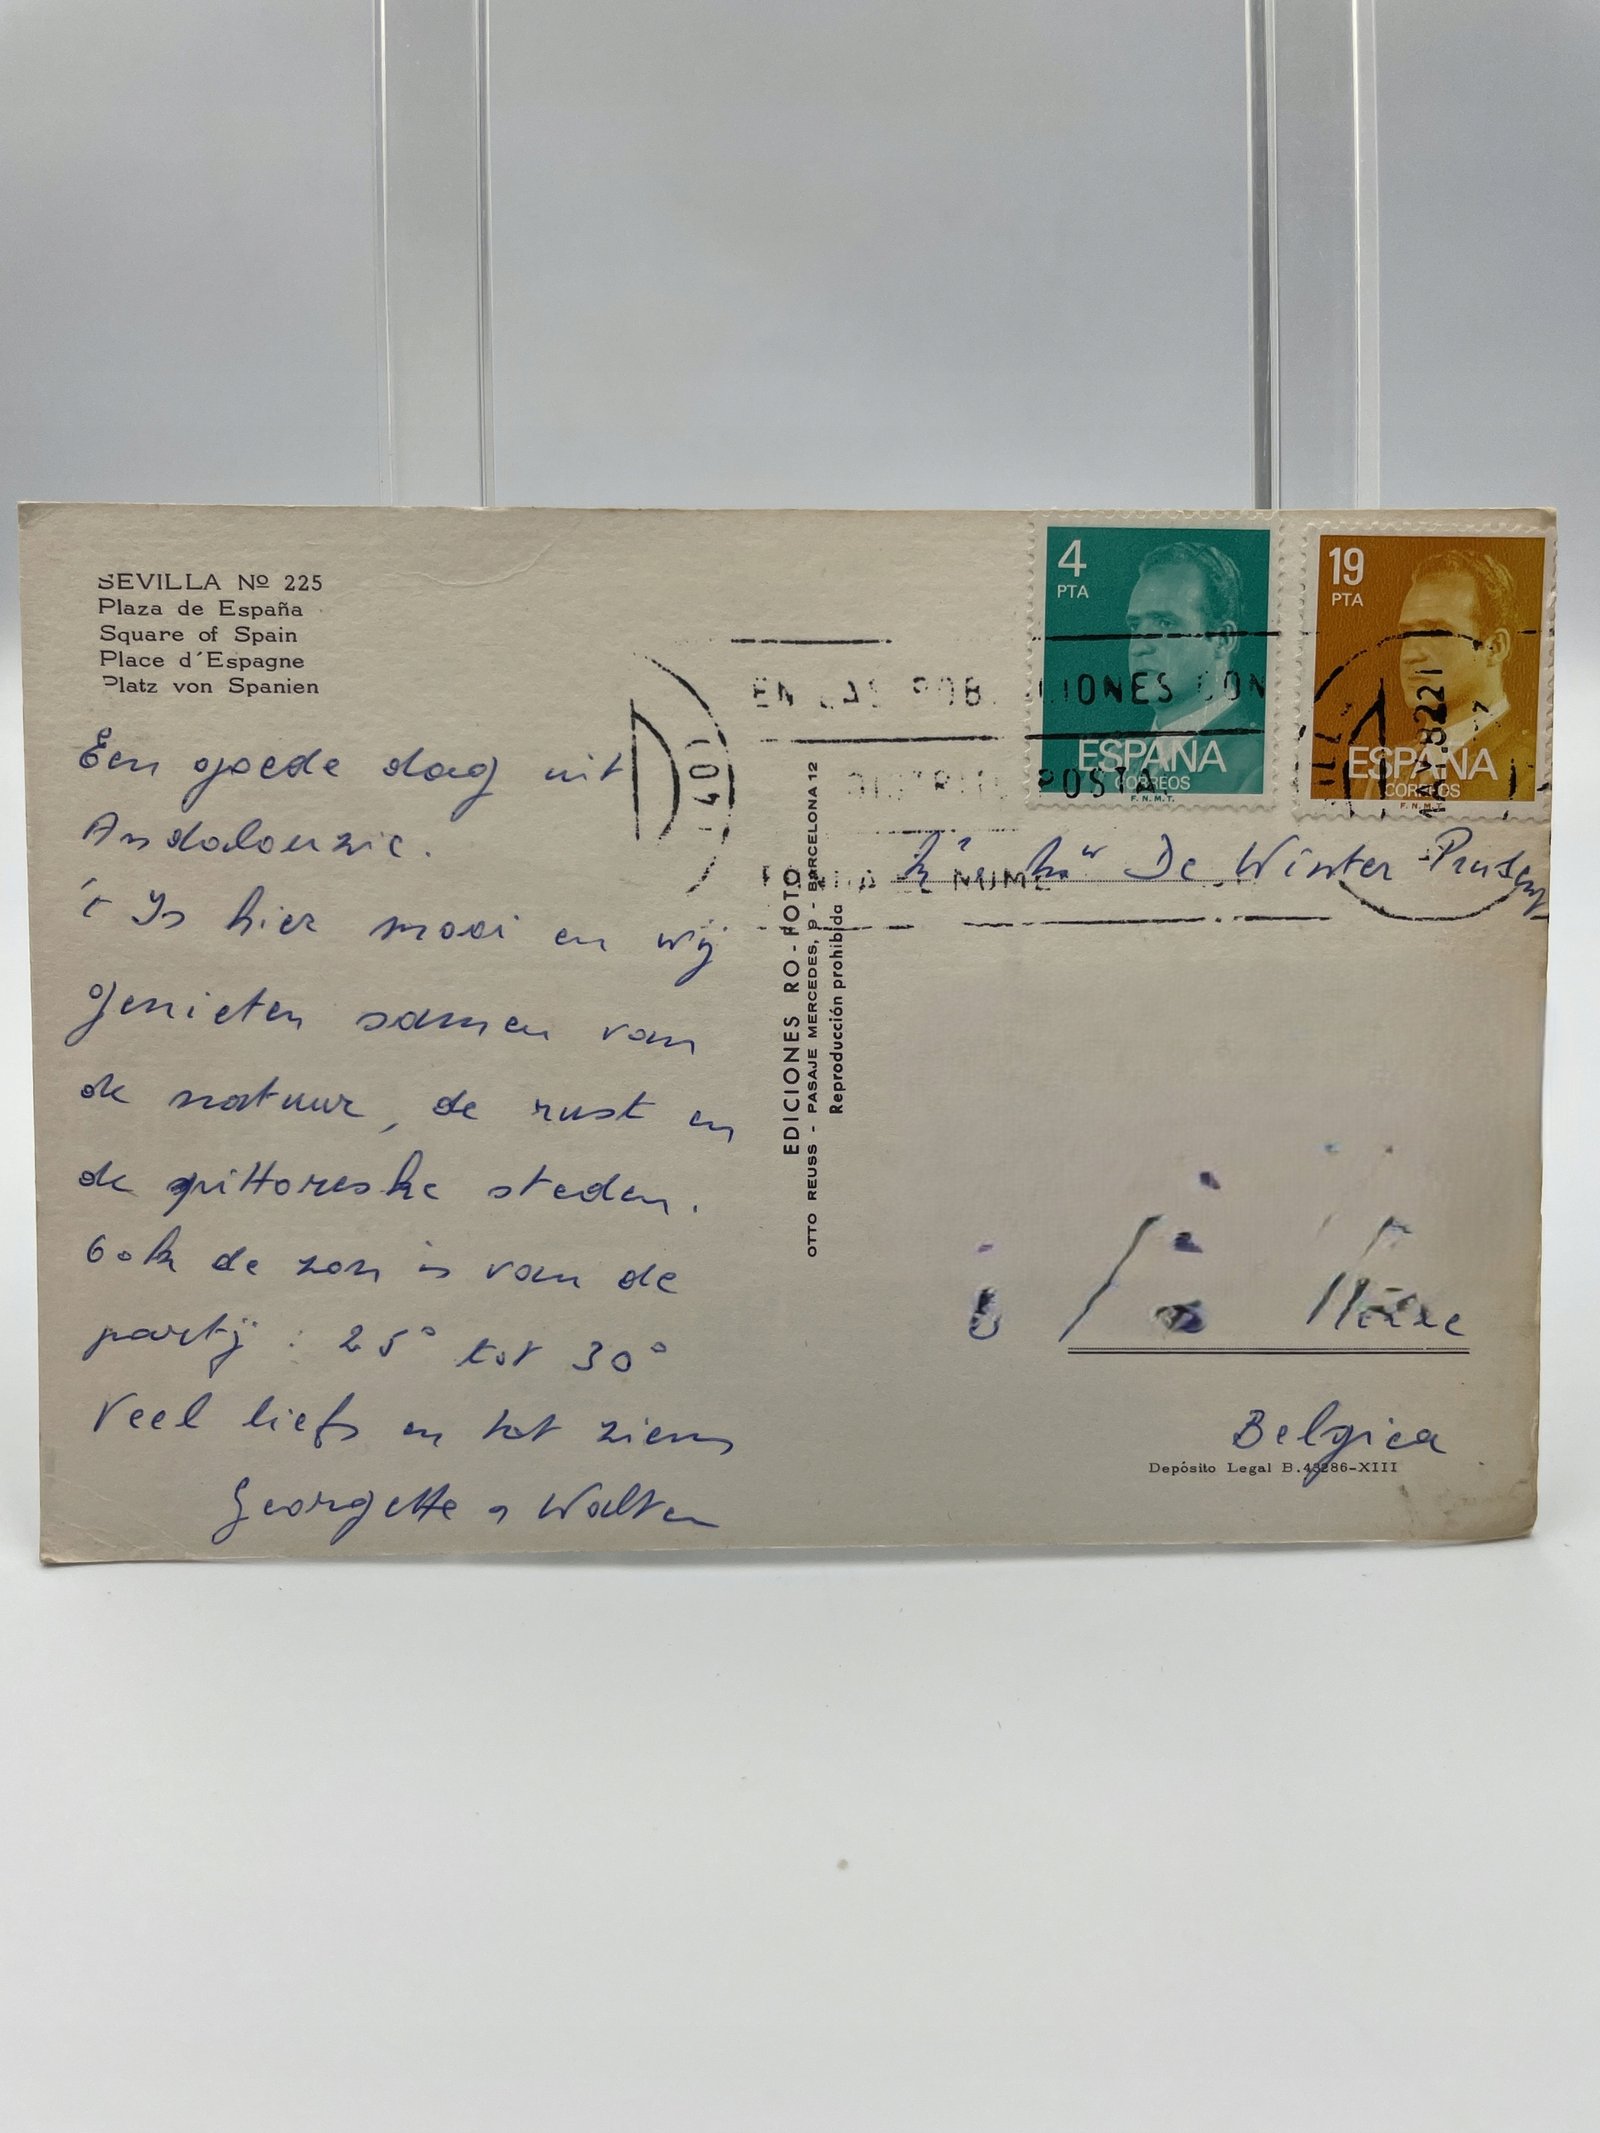 SEVILLA Nº 225
Plaza de España
Square of Spain
Place d´Espagne
Platz von Spanien
Een goede dag uit
Andalouzie.
't Is hier mooi en wij
genieten samen van
de natuur, de rust en
de pittoreske steden.
Ook de zon is van de
partij : 25° tot 30°
Veel liefs en tot ziens
Georgette en Walter
EDICIONES RO - FOTO
OTTO REUSS - PASAJE MERCEDES, 9 - BARCELONA 12
Reproducción prohibida
4
PTA
ESPAÑA
CORREOS
F.N.M.T.
19
PTA
ESPAÑA
CORREOS
F.N.M.T.
EN LAS POBLACIONES CON
POSTAL
De Winter
Belgica
Depósito Legal B.43286-XIII